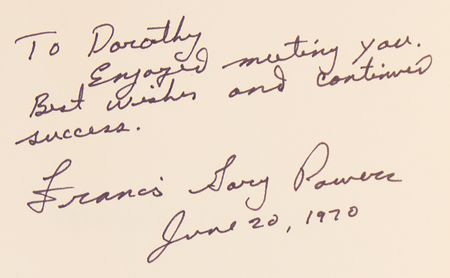 To Dorothy
Enjoyed meeting you.
Best wishes and continued
success.
Francis Gary Powers
June 20, 1970